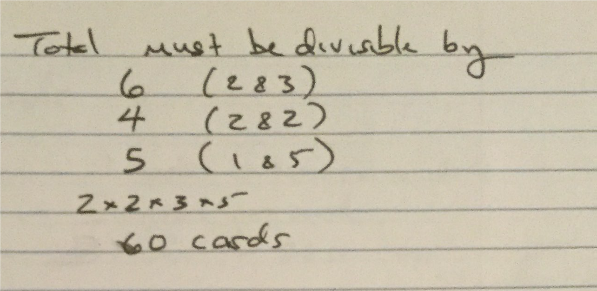 Total must be divisible by
6 (2 & 3)
4 (2 & 2)
5 (1 & 5)
2 × 2 × 3 × 5
60 cards